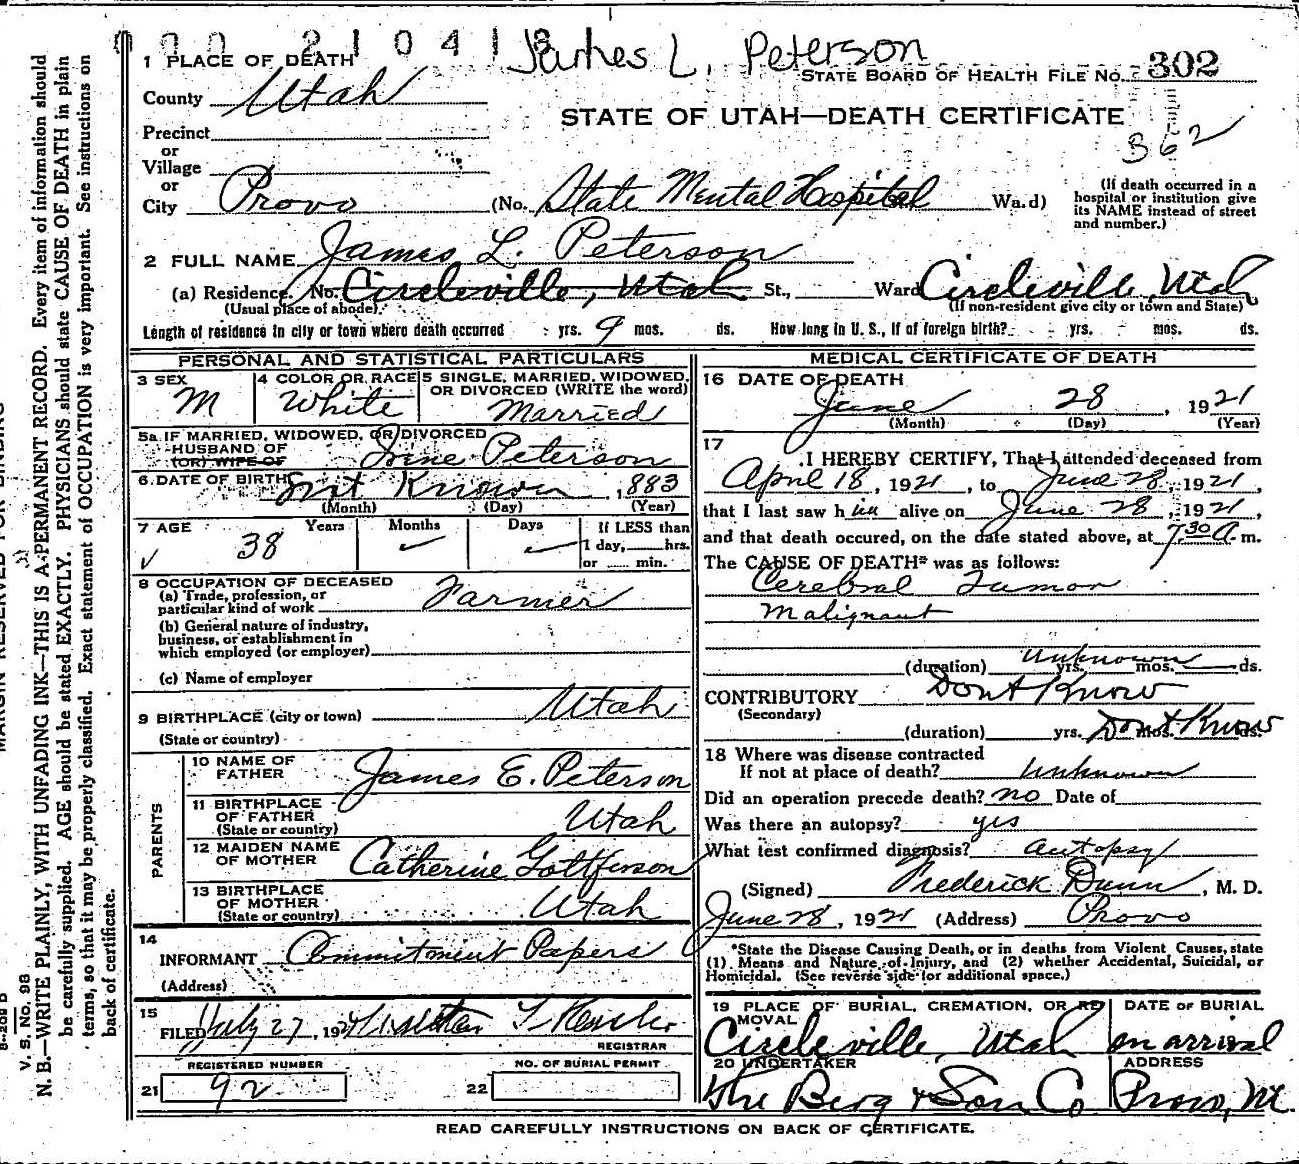 James L. Peterson
1 PLACE OF DEATH
STATE BOARD OF HEALTH FILE NO. 302
County Utah
STATE OF UTAH—DEATH CERTIFICATE
362
Precinct
or
Village
or
City Provo (No. State Mental Hospital Ward)
(If death occurred in a hospital or institution give its NAME instead of street and number.)
2 FULL NAME James L. Peterson
(a) Residence. No. Circleville, Utah St., Ward Circleville, Utah
(Usual place of abode) (If non-resident give city or town and State)
Length of residence in city or town where death occurred yrs. 9 mos. ds. How long in U. S., if of foreign birth? yrs. mos. ds.
PERSONAL AND STATISTICAL PARTICULARS
3 SEX M
4 COLOR OR RACE White
5 SINGLE, MARRIED, WIDOWED, OR DIVORCED (WRITE the word) Married
5a IF MARRIED, WIDOWED, OR DIVORCED
HUSBAND OF
(OR) WIFE OF Irine Peterson
6 DATE OF BIRTH Not Known, 1883
(Month) (Day) (Year)
7 AGE Years Months Days If LESS than
38 1 day, hrs.
or min.
8 OCCUPATION OF DECEASED
(a) Trade, profession, or
particular kind of work Farmer
(b) General nature of industry,
business, or establishment in
which employed (or employer)
(c) Name of employer
9 BIRTHPLACE (city or town) Utah
(State or country)
PARENTS
10 NAME OF
FATHER James E. Peterson
11 BIRTHPLACE
OF FATHER Utah
(State or country)
12 MAIDEN NAME
OF MOTHER Catherine Gottferson
13 BIRTHPLACE
OF MOTHER Utah
(State or country)
14
INFORMANT Commitment Papers
(Address)
15
FILED July 27, 1921
REGISTRAR
REGISTERED NUMBER
21 92
NO. OF BURIAL PERMIT
22
MEDICAL CERTIFICATE OF DEATH
16 DATE OF DEATH
June 28, 1921
(Month) (Day) (Year)
17
I HEREBY CERTIFY, That I attended deceased from
April 18, 1921, to June 28, 1921,
that I last saw him alive on June 28, 1921,
and that death occured, on the date stated above, at 7 30 A. m.
The CAUSE OF DEATH* was as follows:
Cerebral Tumor
Malignant
(duration) Unknown yrs. mos. ds.
CONTRIBUTORY Dont Know
(Secondary)
(duration) yrs. mos. ds. Dont Know
18 Where was disease contracted
If not at place of death? Unknown
Did an operation precede death? no Date of
Was there an autopsy? yes
What test confirmed diagnosis? autopsy
(Signed) Frederick Dunn, M. D.
June 28, 1921 (Address) Provo
*State the Disease Causing Death, or in deaths from Violent Causes, state
(1) Means and Nature of Injury, and (2) whether Accidental, Suicidal, or
Homicidal. (See reverse side for additional space.)
19 PLACE OF BURIAL, CREMATION, OR REMOVAL
Circleville, Utah
DATE OF BURIAL
on arrival
20 UNDERTAKER
The Berg & Son Co
ADDRESS
Provo, Ut.
READ CAREFULLY INSTRUCTIONS ON BACK OF CERTIFICATE.
MARGIN RESERVED FOR BINDING
V. S. No. 98
N. B.—WRITE PLAINLY, WITH UNFADING INK—THIS IS A PERMANENT RECORD. Every item of information should
be carefully supplied. AGE should be stated EXACTLY. PHYSICIANS should state CAUSE OF DEATH in plain
terms, so that it may be properly classified. Exact statement of OCCUPATION is very important. See instructions on
back of certificate.